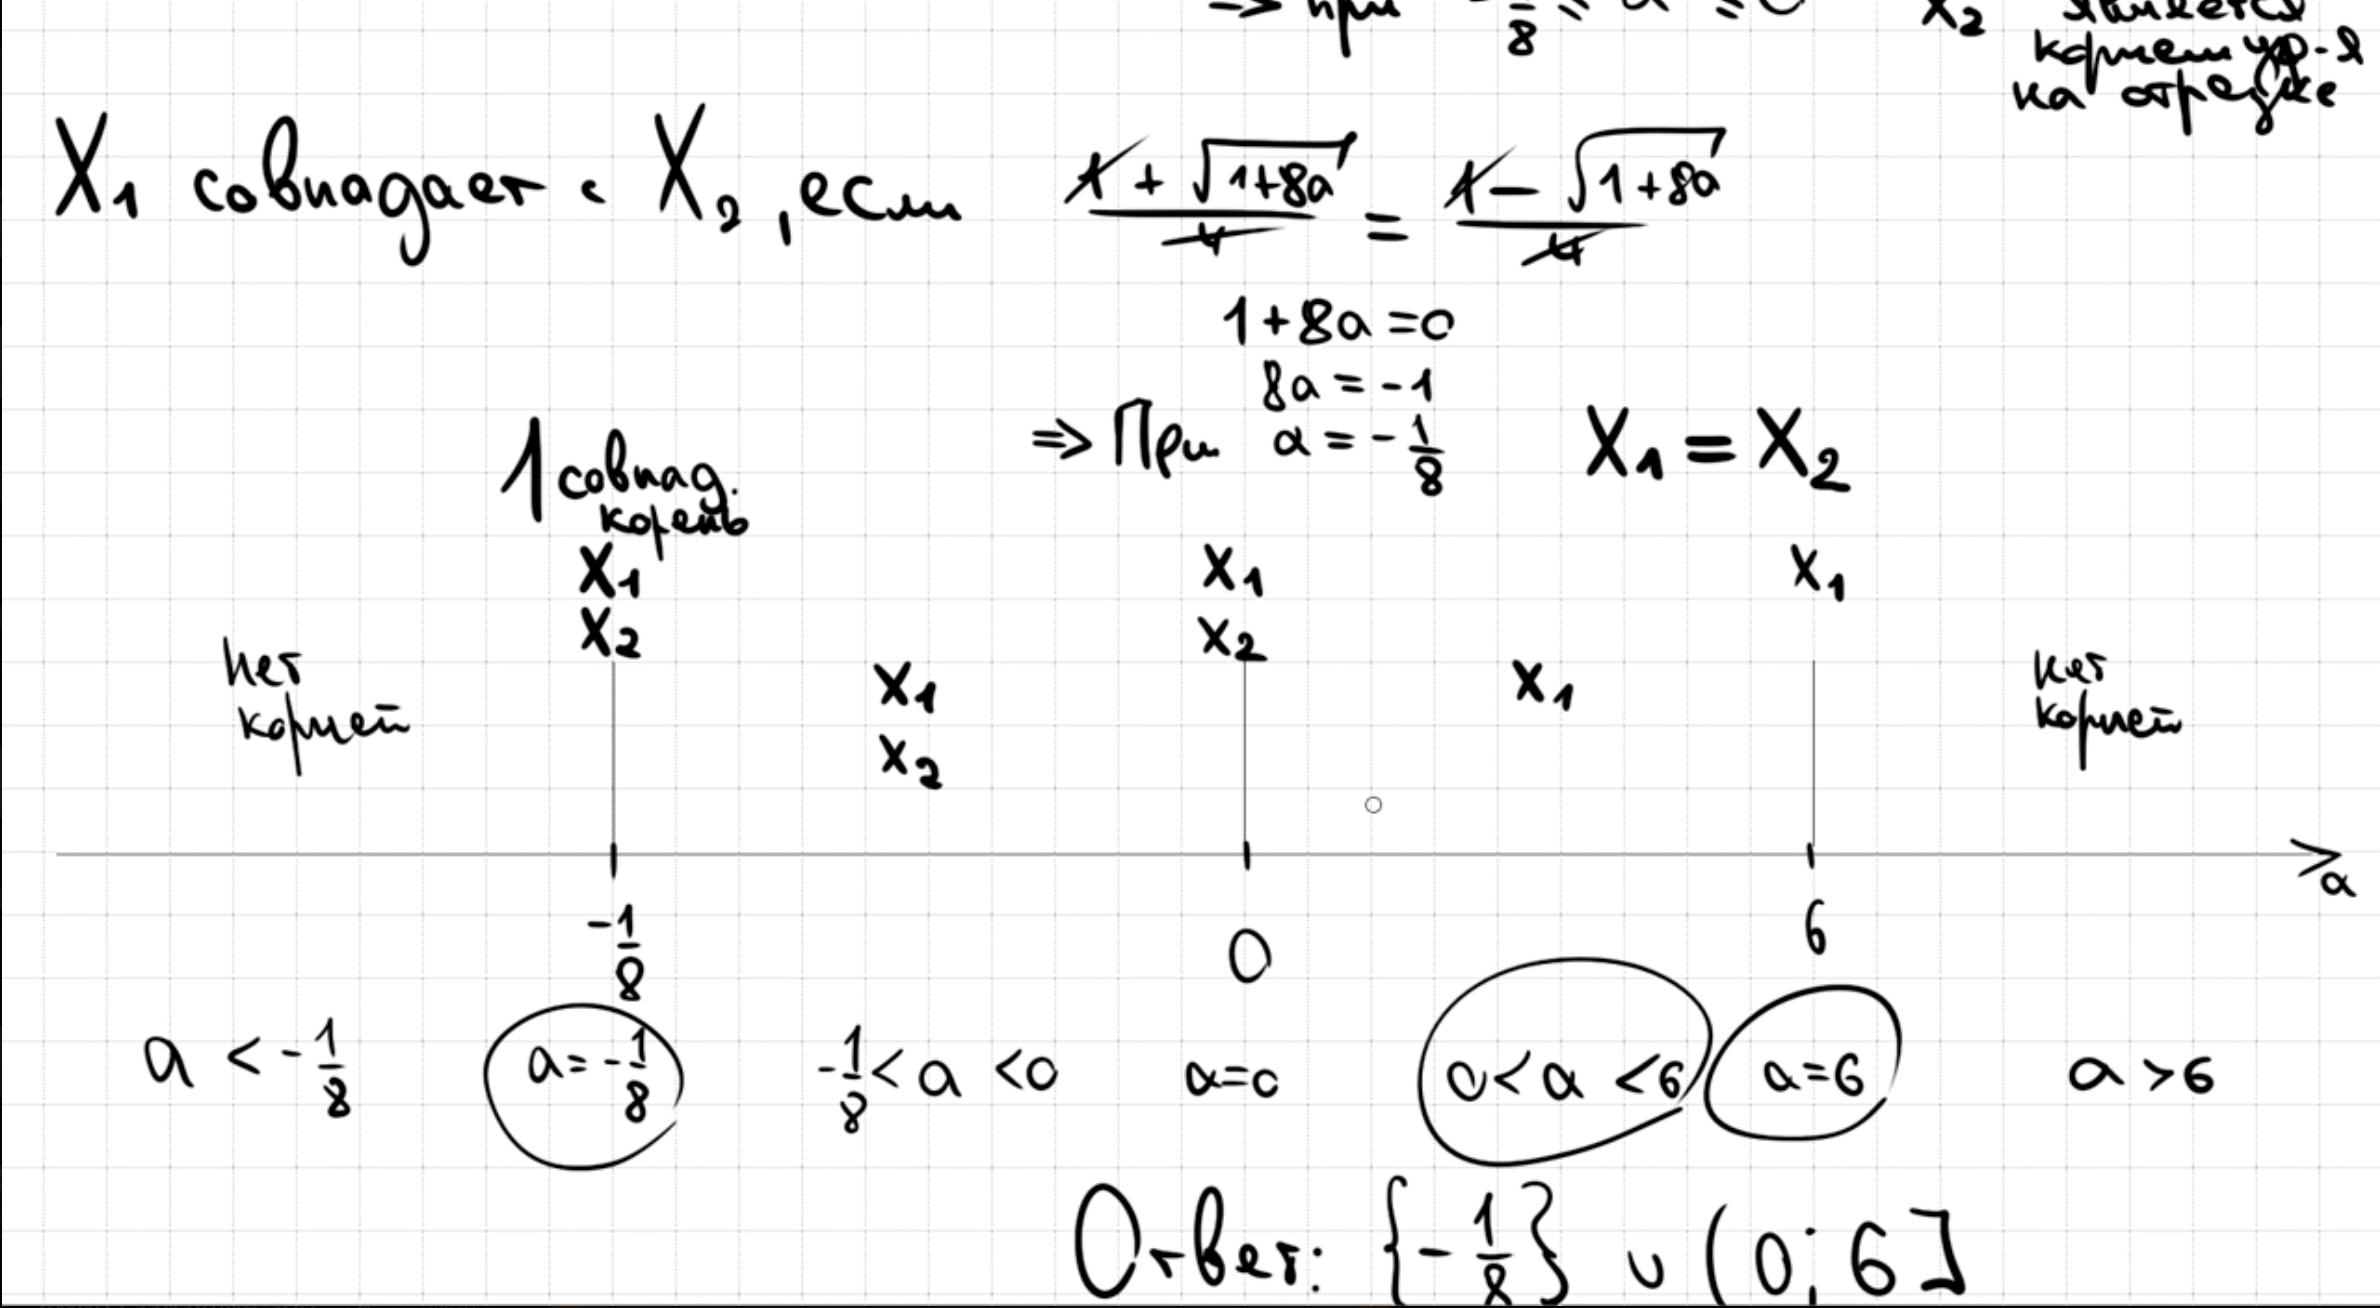 => при -1/8 ≤ a ≤ 0 x₂ является
корнем ур-я
на отрезке
X₁ совпадает с X₂, если (1 + √(1+8a))/4 = (1 - √(1+8a))/4
1+8a=0
8a = -1
=> При a = -1/8 X₁ = X₂
1 совпад.
корень
X₁ x₁ x₁
X₂ x₂
нет x₁ x₁ нет
корней x₂ корней
a
-1/8 0 6
a < -1/8 a = -1/8 -1/8 < a < 0 a=0 0 < a < 6 a=6 a > 6
Ответ: {-1/8} ∪ (0; 6]